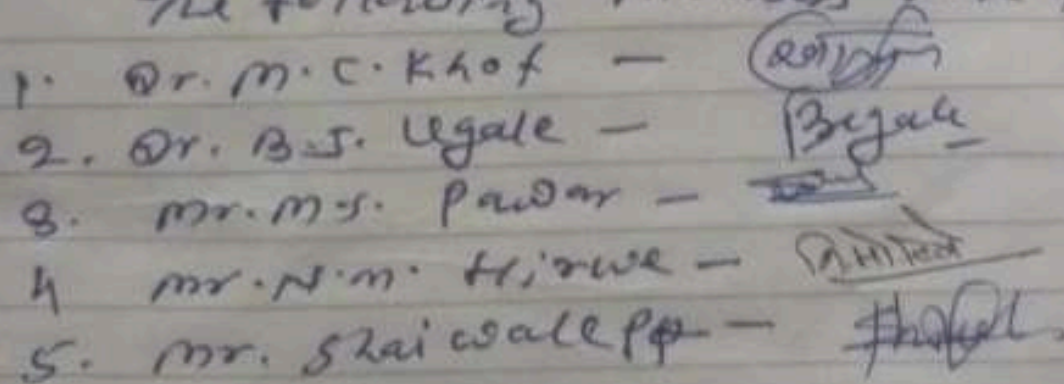 The following
1. Dr. M. C. Khot -
2. Dr. B.S. Ugale - BUgale
3. Mr. M.S. Pawar -
4 Mr. N.M. Hirwe -
5. Mr. Shaiwale PP -